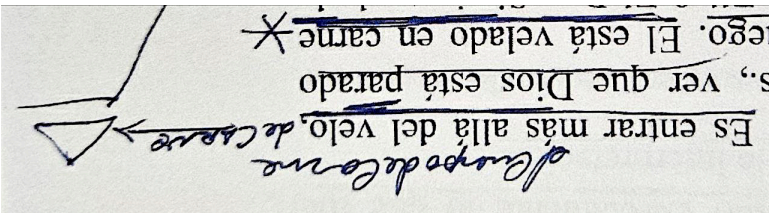 el cuerpo de carne
Es entrar más allá del velo, de carne
s., ver que Dios está parado
ego. El está velado en carne